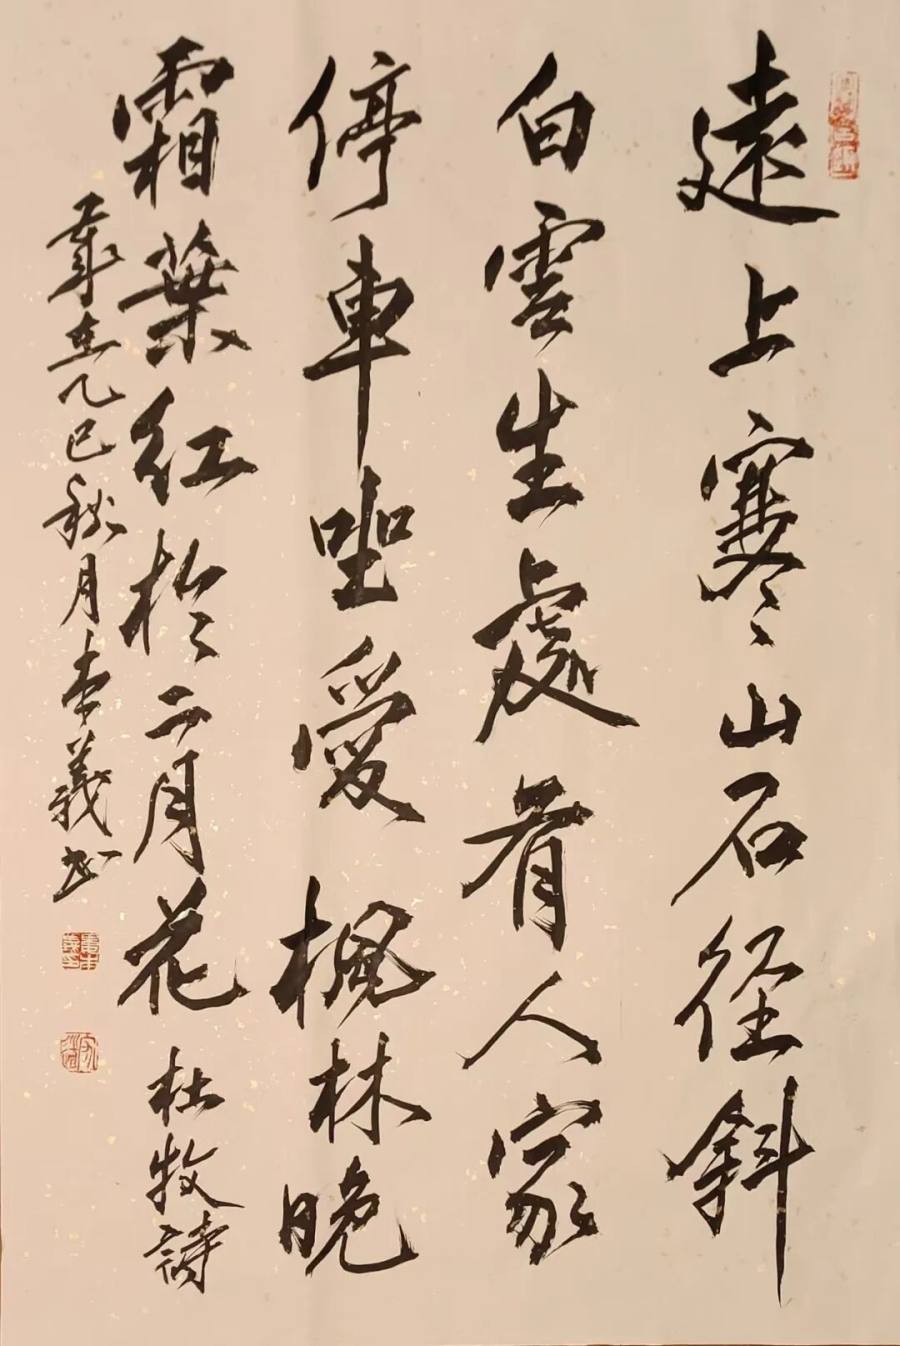 遠上寒山石径斜
白雲生處有人家
停車坐愛楓林晚
霜葉紅於二月花 杜牧詩
歲在乙巳秋月李義書